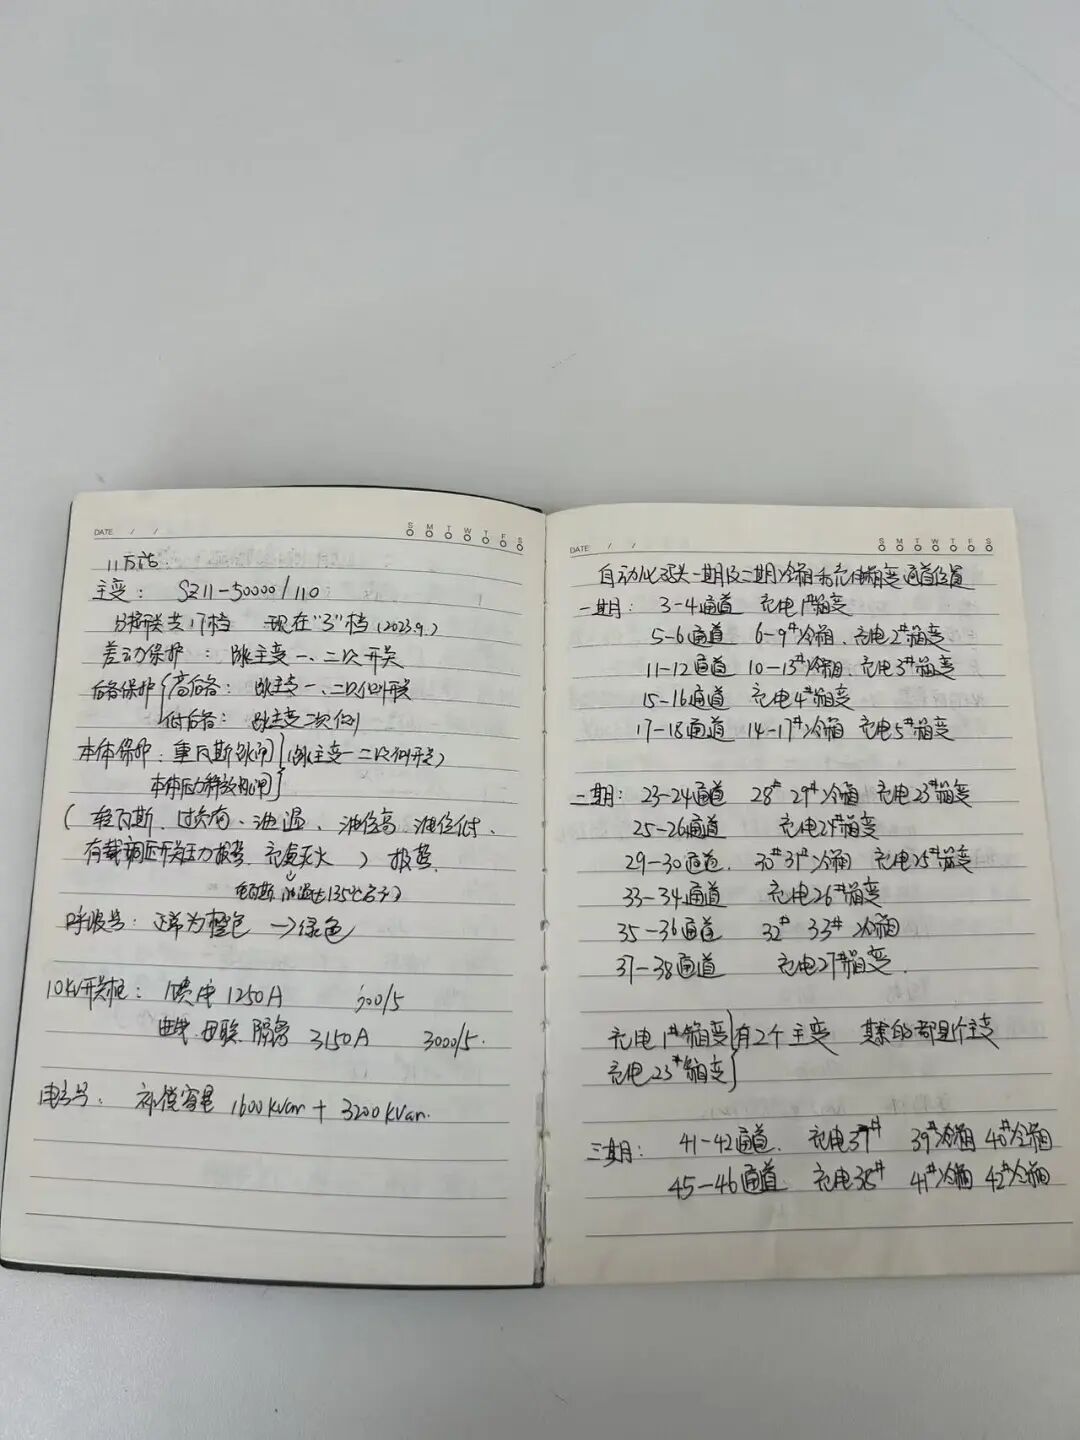 DATE / /
S M T W T F S
11万站:
主变: SZ11-50000/110
分接开关共17档 现在"3"档(2023.9.)
差动保护: 跳主变一、二次开关
后备保护{高后备: 跳主变一、二次侧开关
低后备: 跳主变二次侧
本体保护: 重瓦斯跳闸}(跳主变一二次侧开关)
本体压力释放跳闸}
(轻瓦斯、过负荷、油温、油位高 油位低、
有载调压开关压力报警 充氮灭火) 报警.
重瓦斯 油温达135℃
呼吸器: 正常为橙色→绿色
10kV开关柜: 馈电1250A 300/5
母联 隔离 3150A 3000/5.
电容器: 补偿容量 1600kvar+3200kvar.
DATE / /
S M T W T F S
自动化码头一期及二期冷箱和充电箱变通道位置
一期: 3-4通道 充电1#箱变
5-6通道 6-9#冷箱、充电2#箱变
11-12通道 10-13#冷箱、充电3#箱变
15-16通道 充电4#箱变
17-18通道 14-17#冷箱 充电5#箱变
二期: 23-24通道 28# 29#冷箱 充电23#箱变
25-26通道 充电24#箱变
29-30通道. 30#31#冷箱 充电25#箱变
33-34通道 充电26#箱变
35-36通道 32# 33#冷箱
37-38通道 充电27#箱变.
充电1#箱变}有2个主变 其余的都是1个主变
充电23#箱变}
三期: 41-42通道. 充电37# 39#冷箱 40#冷箱
45-46通道 充电38# 41#冷箱 42#冷箱